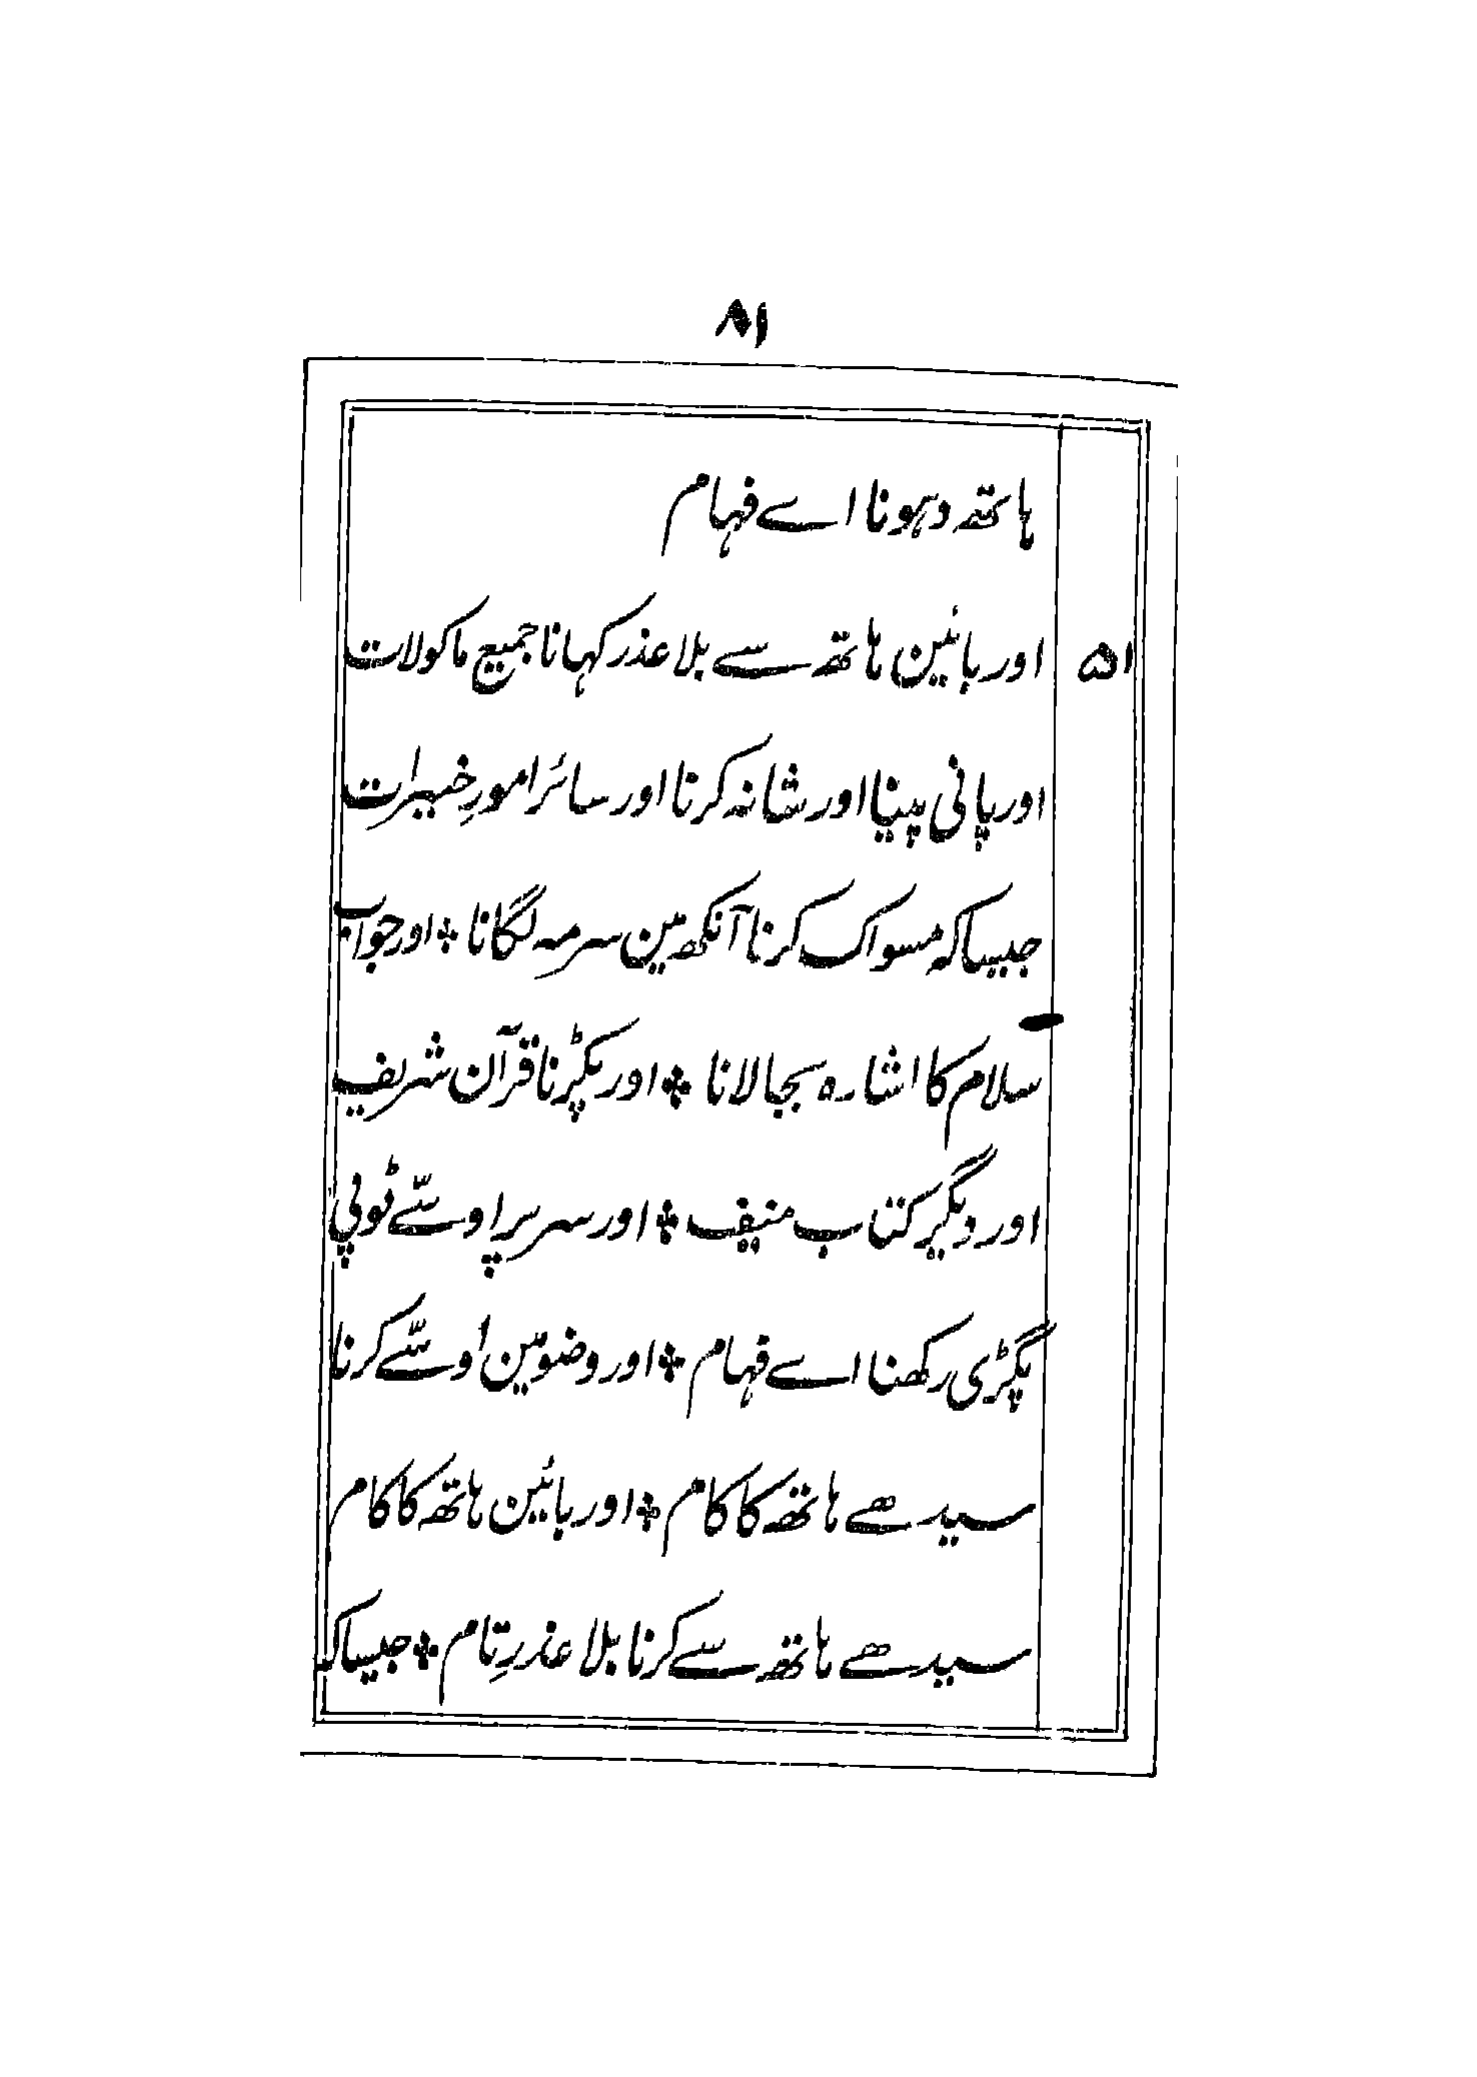 ۸۱
ہاتھہ دہونا اے فہام
۵۱ اور بائین ہاتھہ سے بلا عذر کہانا جمیع ماکولات
اور پانی پینا اور شانہ کرنا اور سائر امورِ خیرات
جیسا کہ مسواک کرنا آنکھ مین سرمہ لگانا ۔ اور جواب
سلام کا اشارہ بجالانا ۔ اور پکڑنا قرآن شریف
اور دیگر کتاب منیف ۔ اور سر پر اوسّے ٹوپی
پگڑی رکھنا اے فہام ۔ اور وضو مین اُوسّے کرنا
سیدھے ہاتھہ کا کام ۔ اور بائین ہاتھہ کا کام
سیدھے ہاتھہ سے کرنا بلا عذرِ تام ۔ جیسا کہ